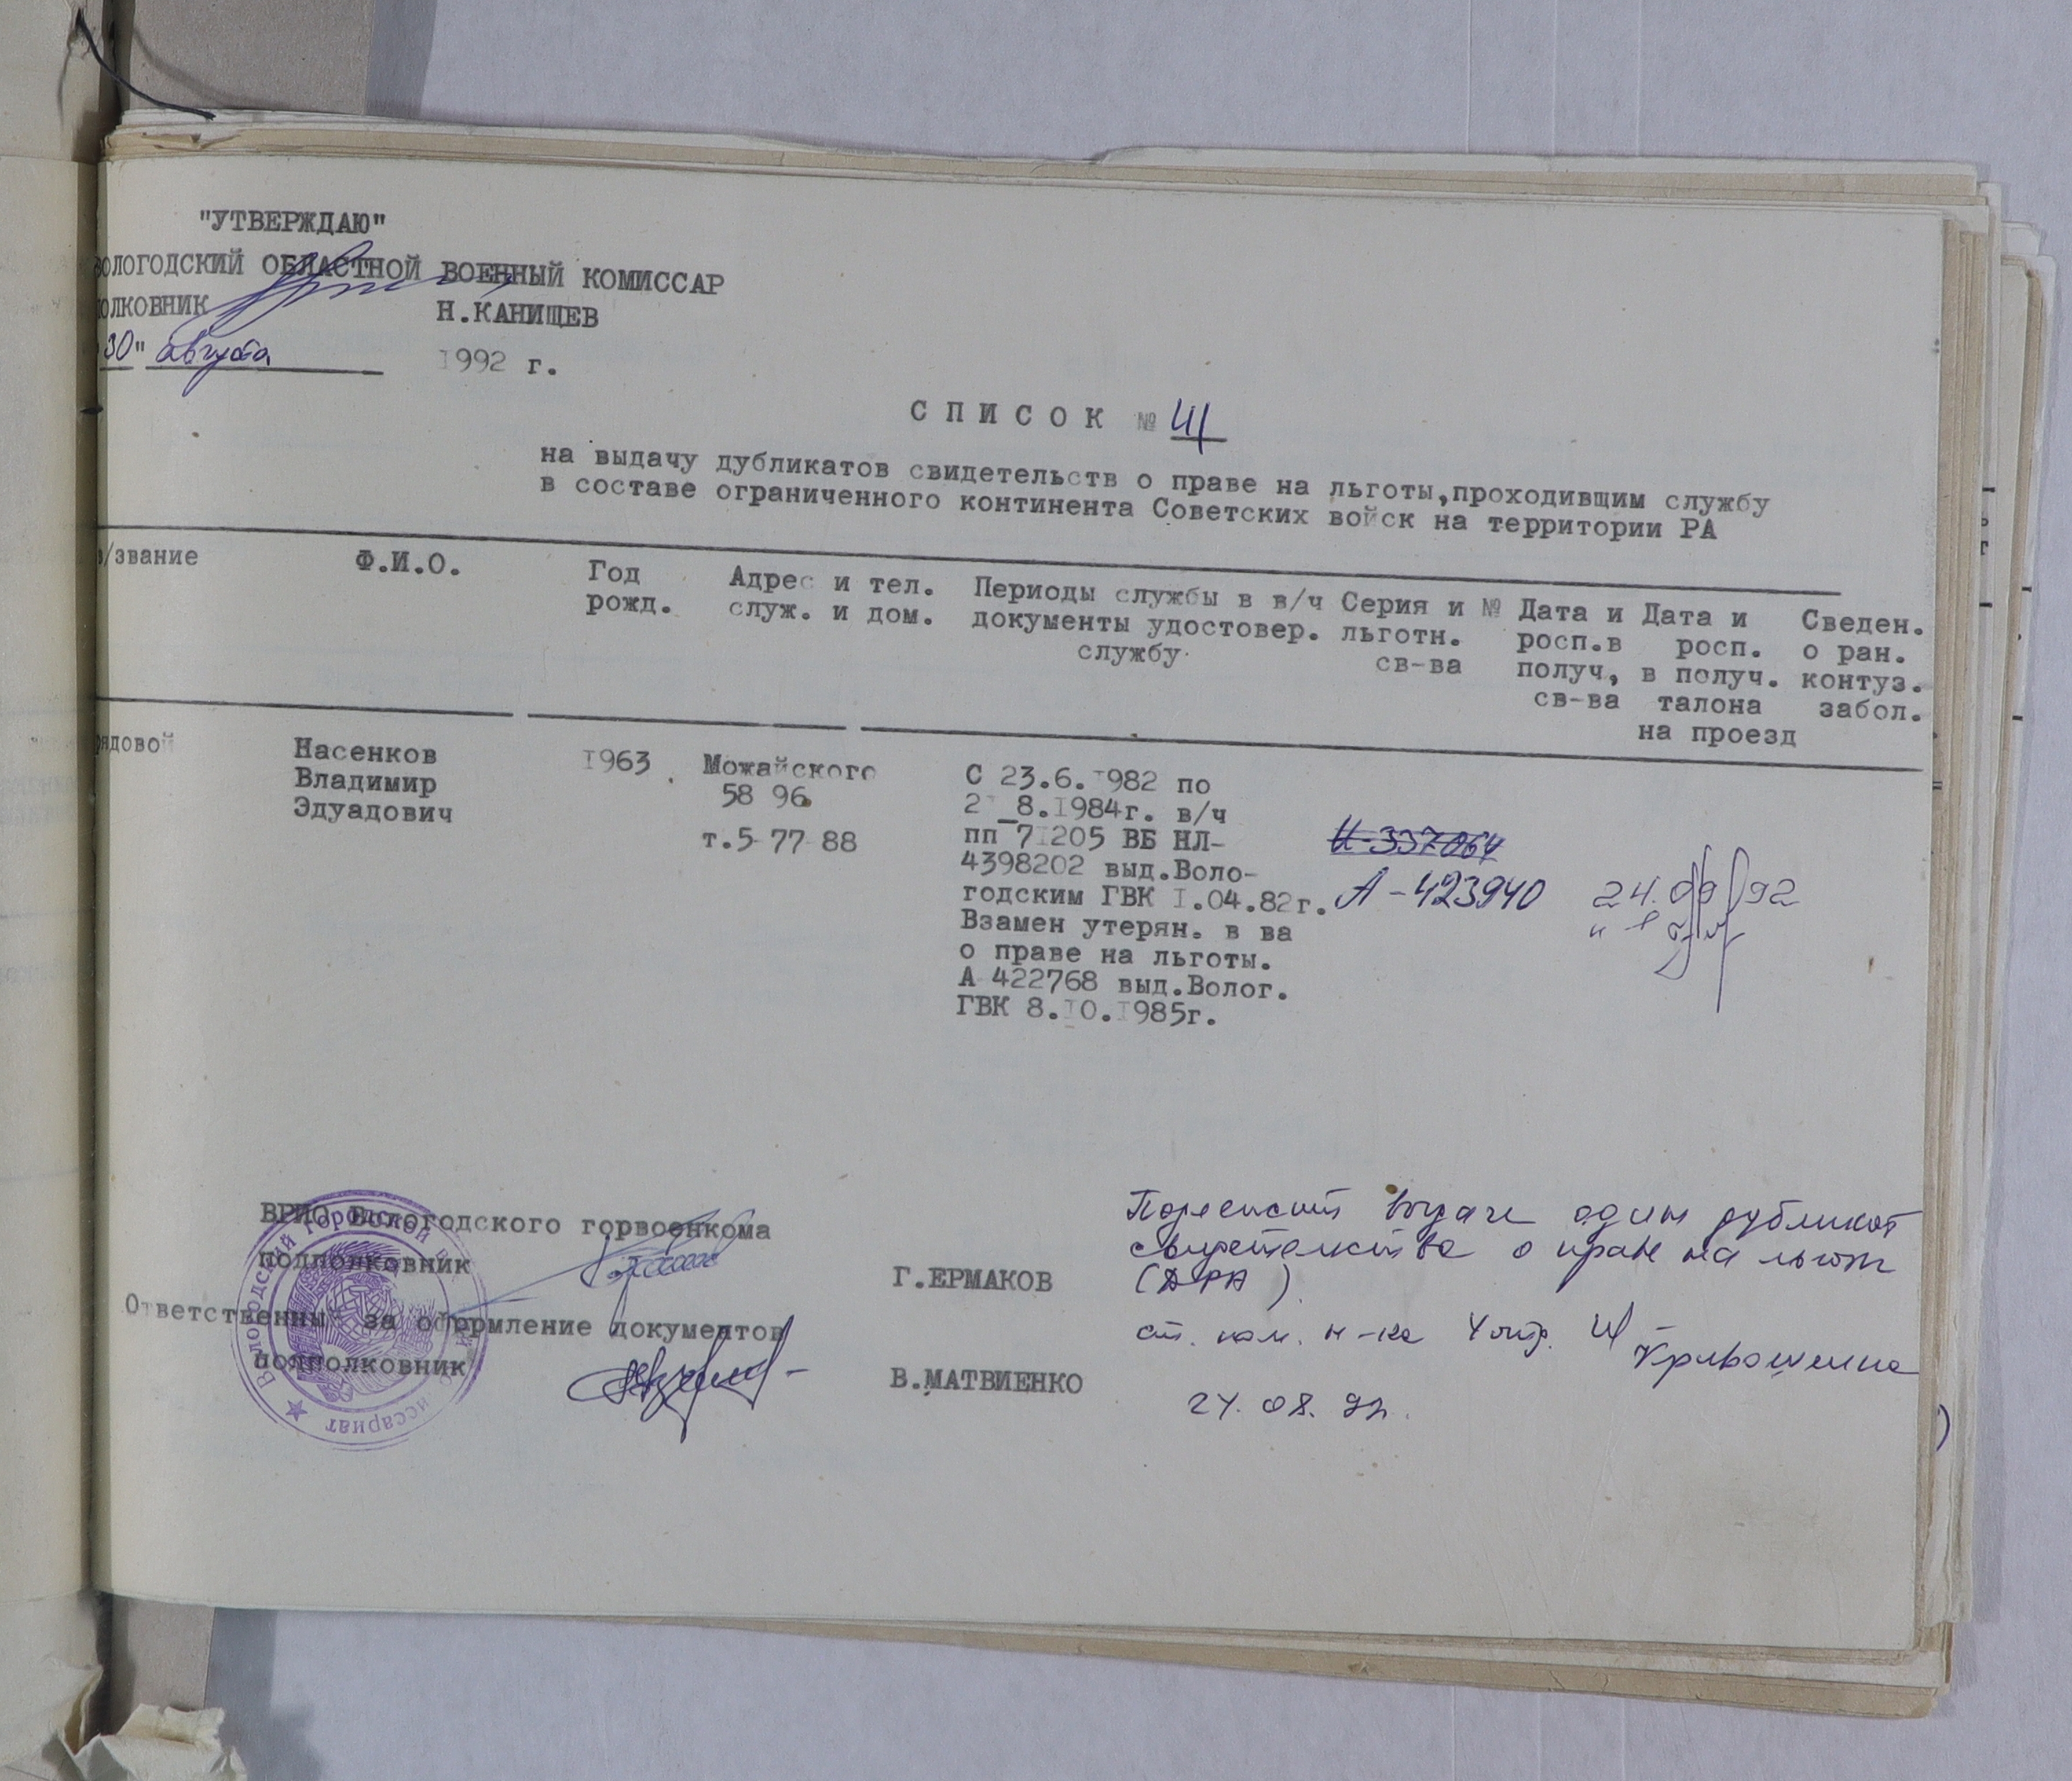 "УТВЕРЖДАЮ"
ВОЛОГОДСКИЙ ОБЛАСТНОЙ ВОЕННЫЙ КОМИССАР
ПОЛКОВНИК Н.КАНИЩЕВ
30" августа 1992 г.
СПИСОК №
на выдачу дубликатов свидетельств о праве на льготы,проходивщим службу
в составе ограниченного континента Советских войск на территории РА
в/звание Ф.И.О. Год рожд. Адрес и тел. служ. и дом. Периоды службы в в/ч документы удостовер. службу Серия и № льготн. св-ва Дата и росп.в получ, св-ва Дата и росп. в получ. талона на проезд Сведен. о ран. контуз. забол.
рядовой
Насенков
Владимир
Эдуадович
1963
Можайского
58 96
т.5-77-88
С 23.6.1982 по
8.1984г. в/ч
пп 71205 ВБ НЛ-
4398202 выд.Воло-
годским ГВК 1.04.82г.
Взамен утерян. в ва
о праве на льготы.
А 422768 выд.Волог.
ГВК 8.10.1985г.
А-423940
24.09.92
ВРИО Вологодского горвоенкома
подполковник Г.ЕРМАКОВ
Ответственный за оформление документов
подполковник В.МАТВИЕНКО
Подлежит выдаче один дубликат
свидетельства о праве на льготы
(ДРА)
ст. пом. н-ка 4 отд.
24.08.92.
Вологодский городской